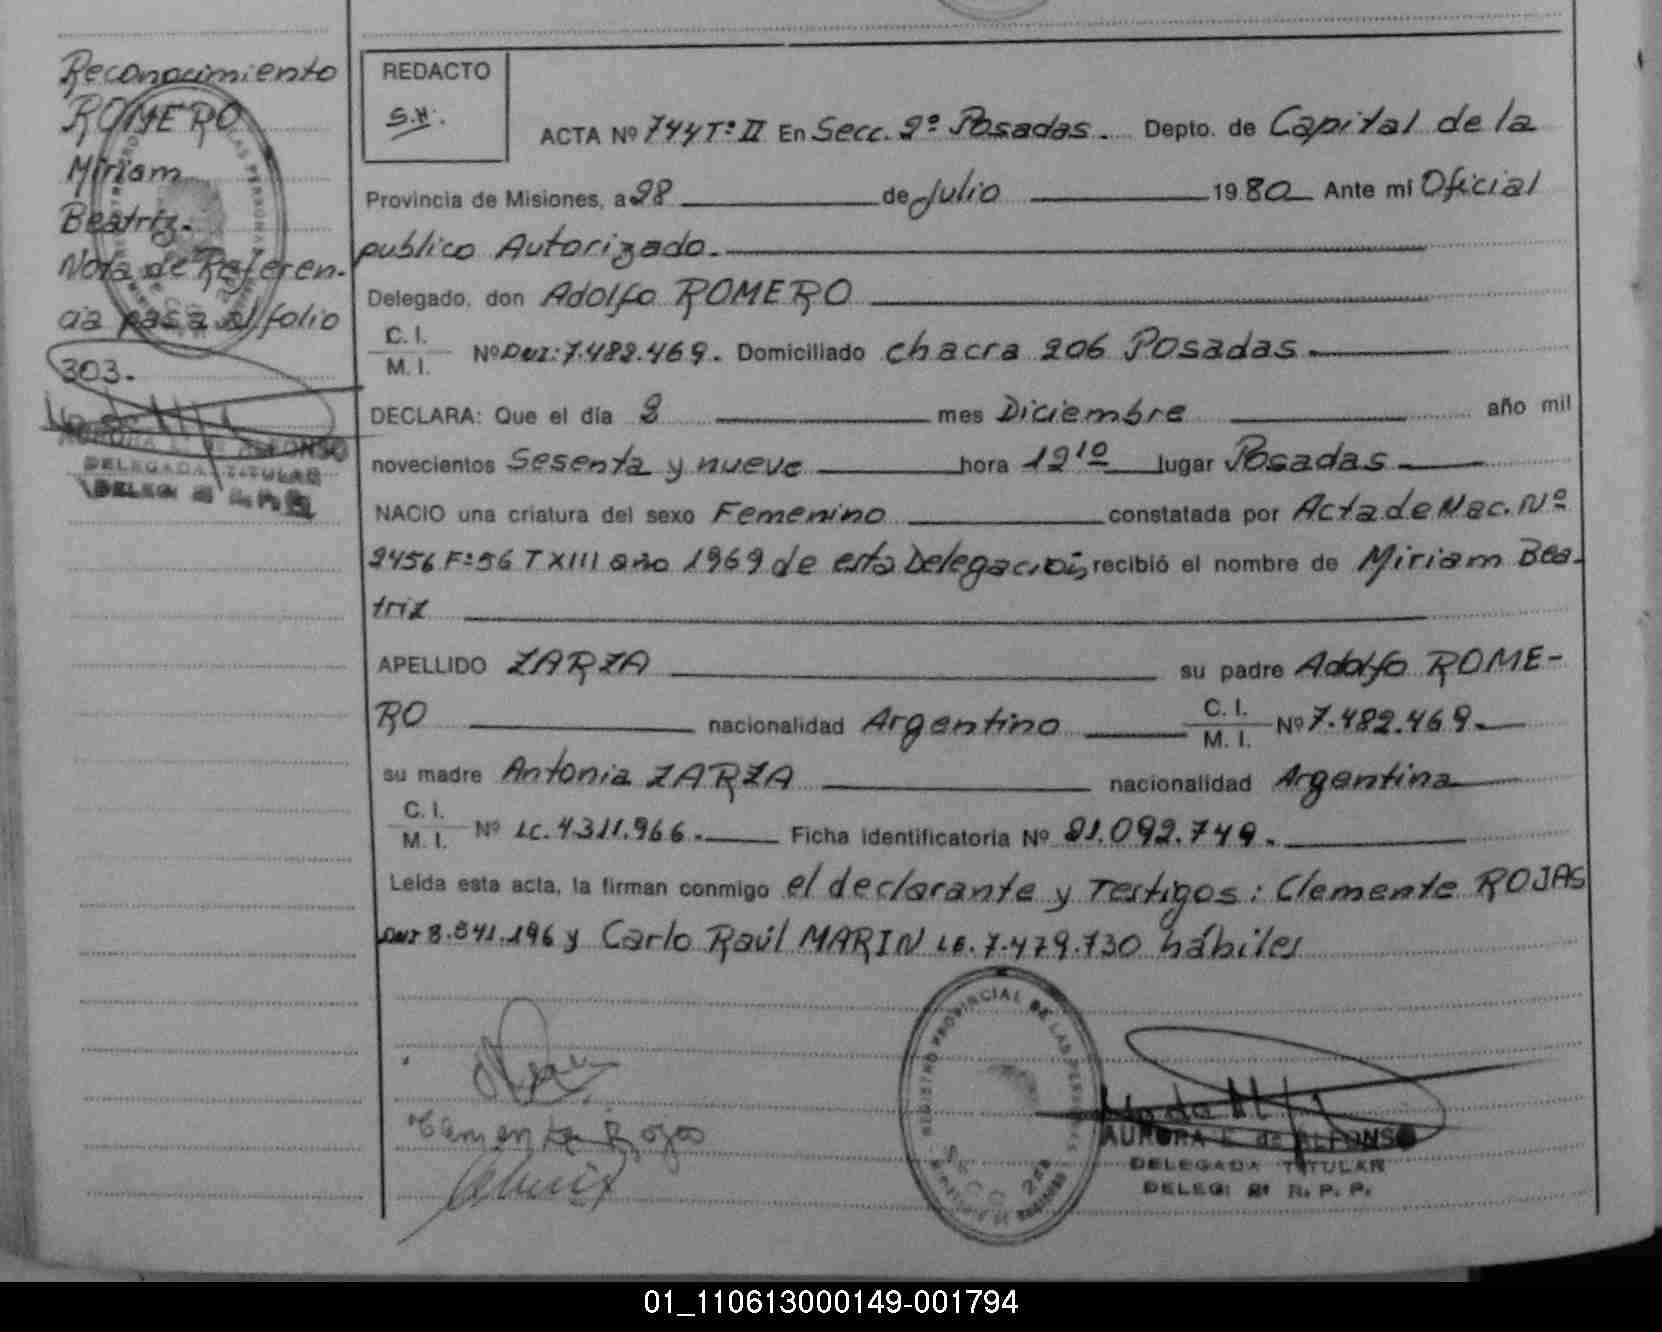 Reconocimiento
ROMERO
Miriam
Beatriz.
Nota de Referen-
cia pasa al folio
303.
AURORA E. de ALFONSO
DELEGADA TITULAR
DELEG: 2ª R. P. P.
REDACTO
S.H.
ACTA Nº 744 Tº II En Secc. 2º Posadas. Depto. de Capital de la
Provincia de Misiones, a 28 de Julio 1980 Ante mi Oficial
publico Autorizado.
Delegado, don Adolfo ROMERO
C. I.
M. I. Nº DNI: 7.482.469. Domiciliado chacra 206 Posadas
DECLARA: Que el día 2 mes Diciembre año mil
novecientos Sesenta y nueve hora 12¹⁰ lugar Posadas
NACIO una criatura del sexo Femenino constatada por Acta de Nac. Nº
2456 Fº 56 T XIII año 1969 de esta Delegación, recibió el nombre de Miriam Bea-
triz
APELLIDO ZARZA su padre Adolfo ROME-
RO nacionalidad Argentino C. I.
M. I. Nº 7.482.469.
su madre Antonia ZARZA nacionalidad Argentina
C. I.
M. I. Nº LC. 4.311.966. Ficha identificatoria Nº 21.092.749.
Leída esta acta, la firman conmigo el declarante y Testigos: Clemente ROJAS
DNI 8.541.196 y Carlo Raúl MARIN LE. 7.479.730 hábiles
REGISTRO PROVINCIAL DE LAS PERSONAS
SECC. 2da
Clemente Rojas
AURORA E. de ALFONSO
DELEGADA TITULAR
DELEG: 2ª R. P. P.
01_110613000149-001794